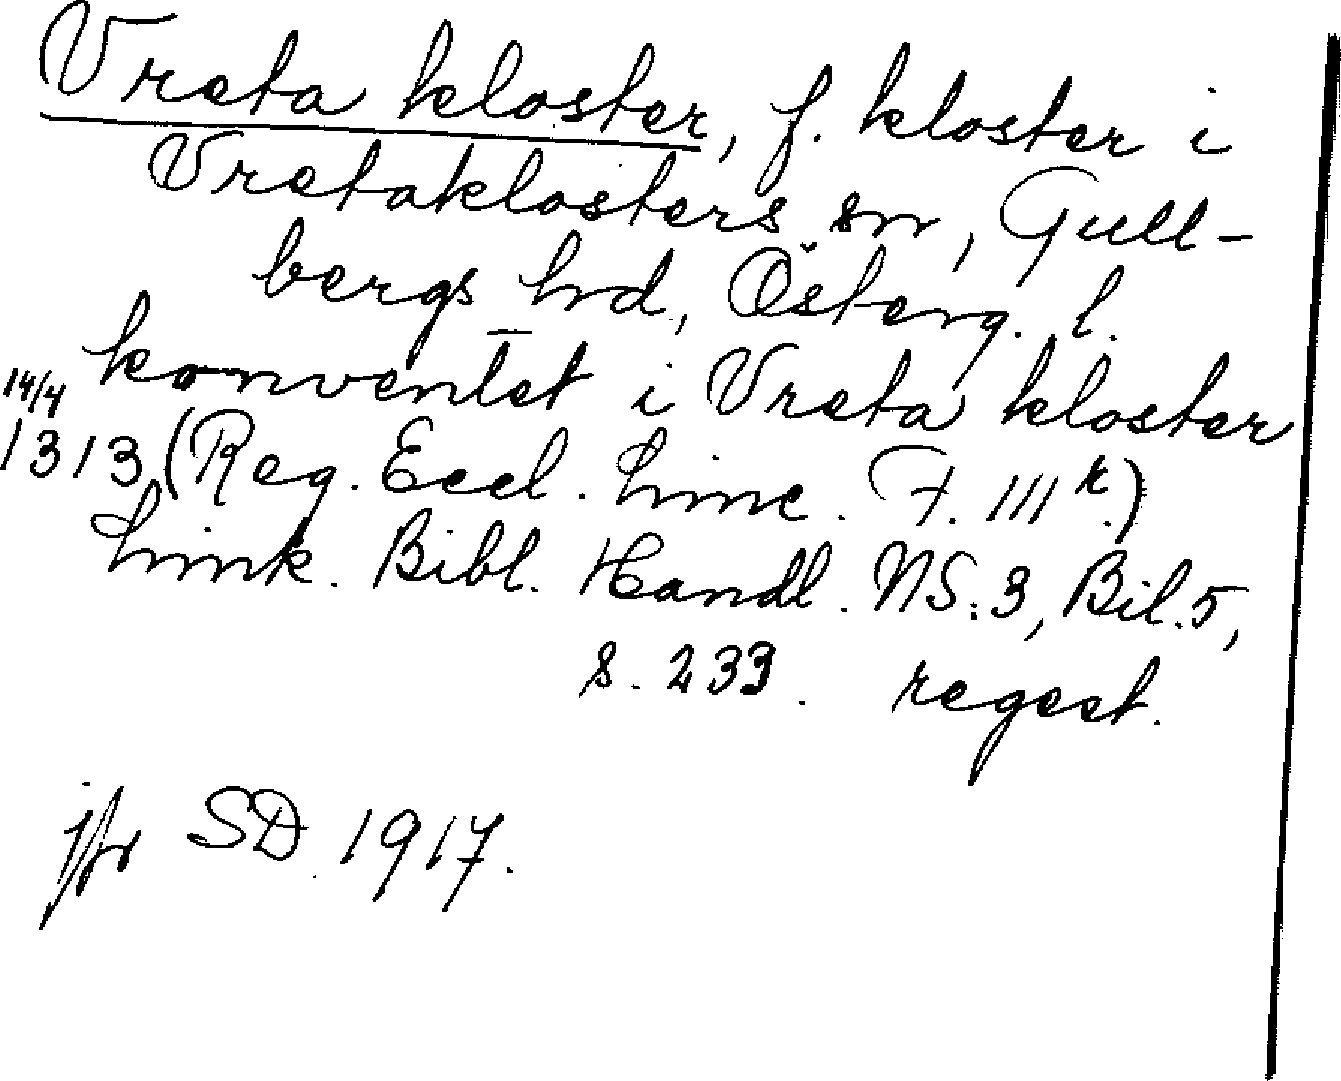 Vreta kloster, f. kloster i
Vretaklosters sn, Gull-
bergs hd, Österg. l.
konventet i Vreta kloster
14/4
1313 (Reg. Eccl. Linc. F. 111 r.)
Link. Bibl. Handl. NS: 3, Bil. 5,
s. 233. regest.
jfr SD 1917.